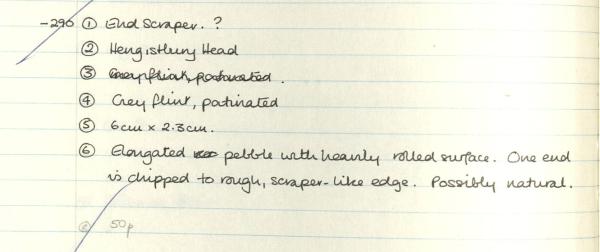 -290 ① End Scraper. ?
② Hengistbury Head
③ Grey flint, patinated.
④ Grey flint, patinated
⑤ 6cm x 2.3cm.
⑥ Elongated pebble with heavily rolled surface. One end
is chipped to rough, scraper-like edge. Possibly natural.
50p